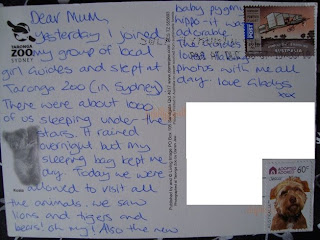 Dear Mum,
Yesterday I joined
my group of local
girl Guides and slept at
Taronga Zoo (in Sydney).
There were about 1000
of us sleeping under the
stars. It rained
overnight but my
sleeping bag kept me
dry. Today we were
allowed to visit all
the animals. We saw
lions and tigers and
bears! oh my! Also the new
baby pygmy
hippo - it was
adorable.
photos with me all
day. love Gladys
xxx
TARONGA
ZOO
SYDNEY
AUSTRALIA